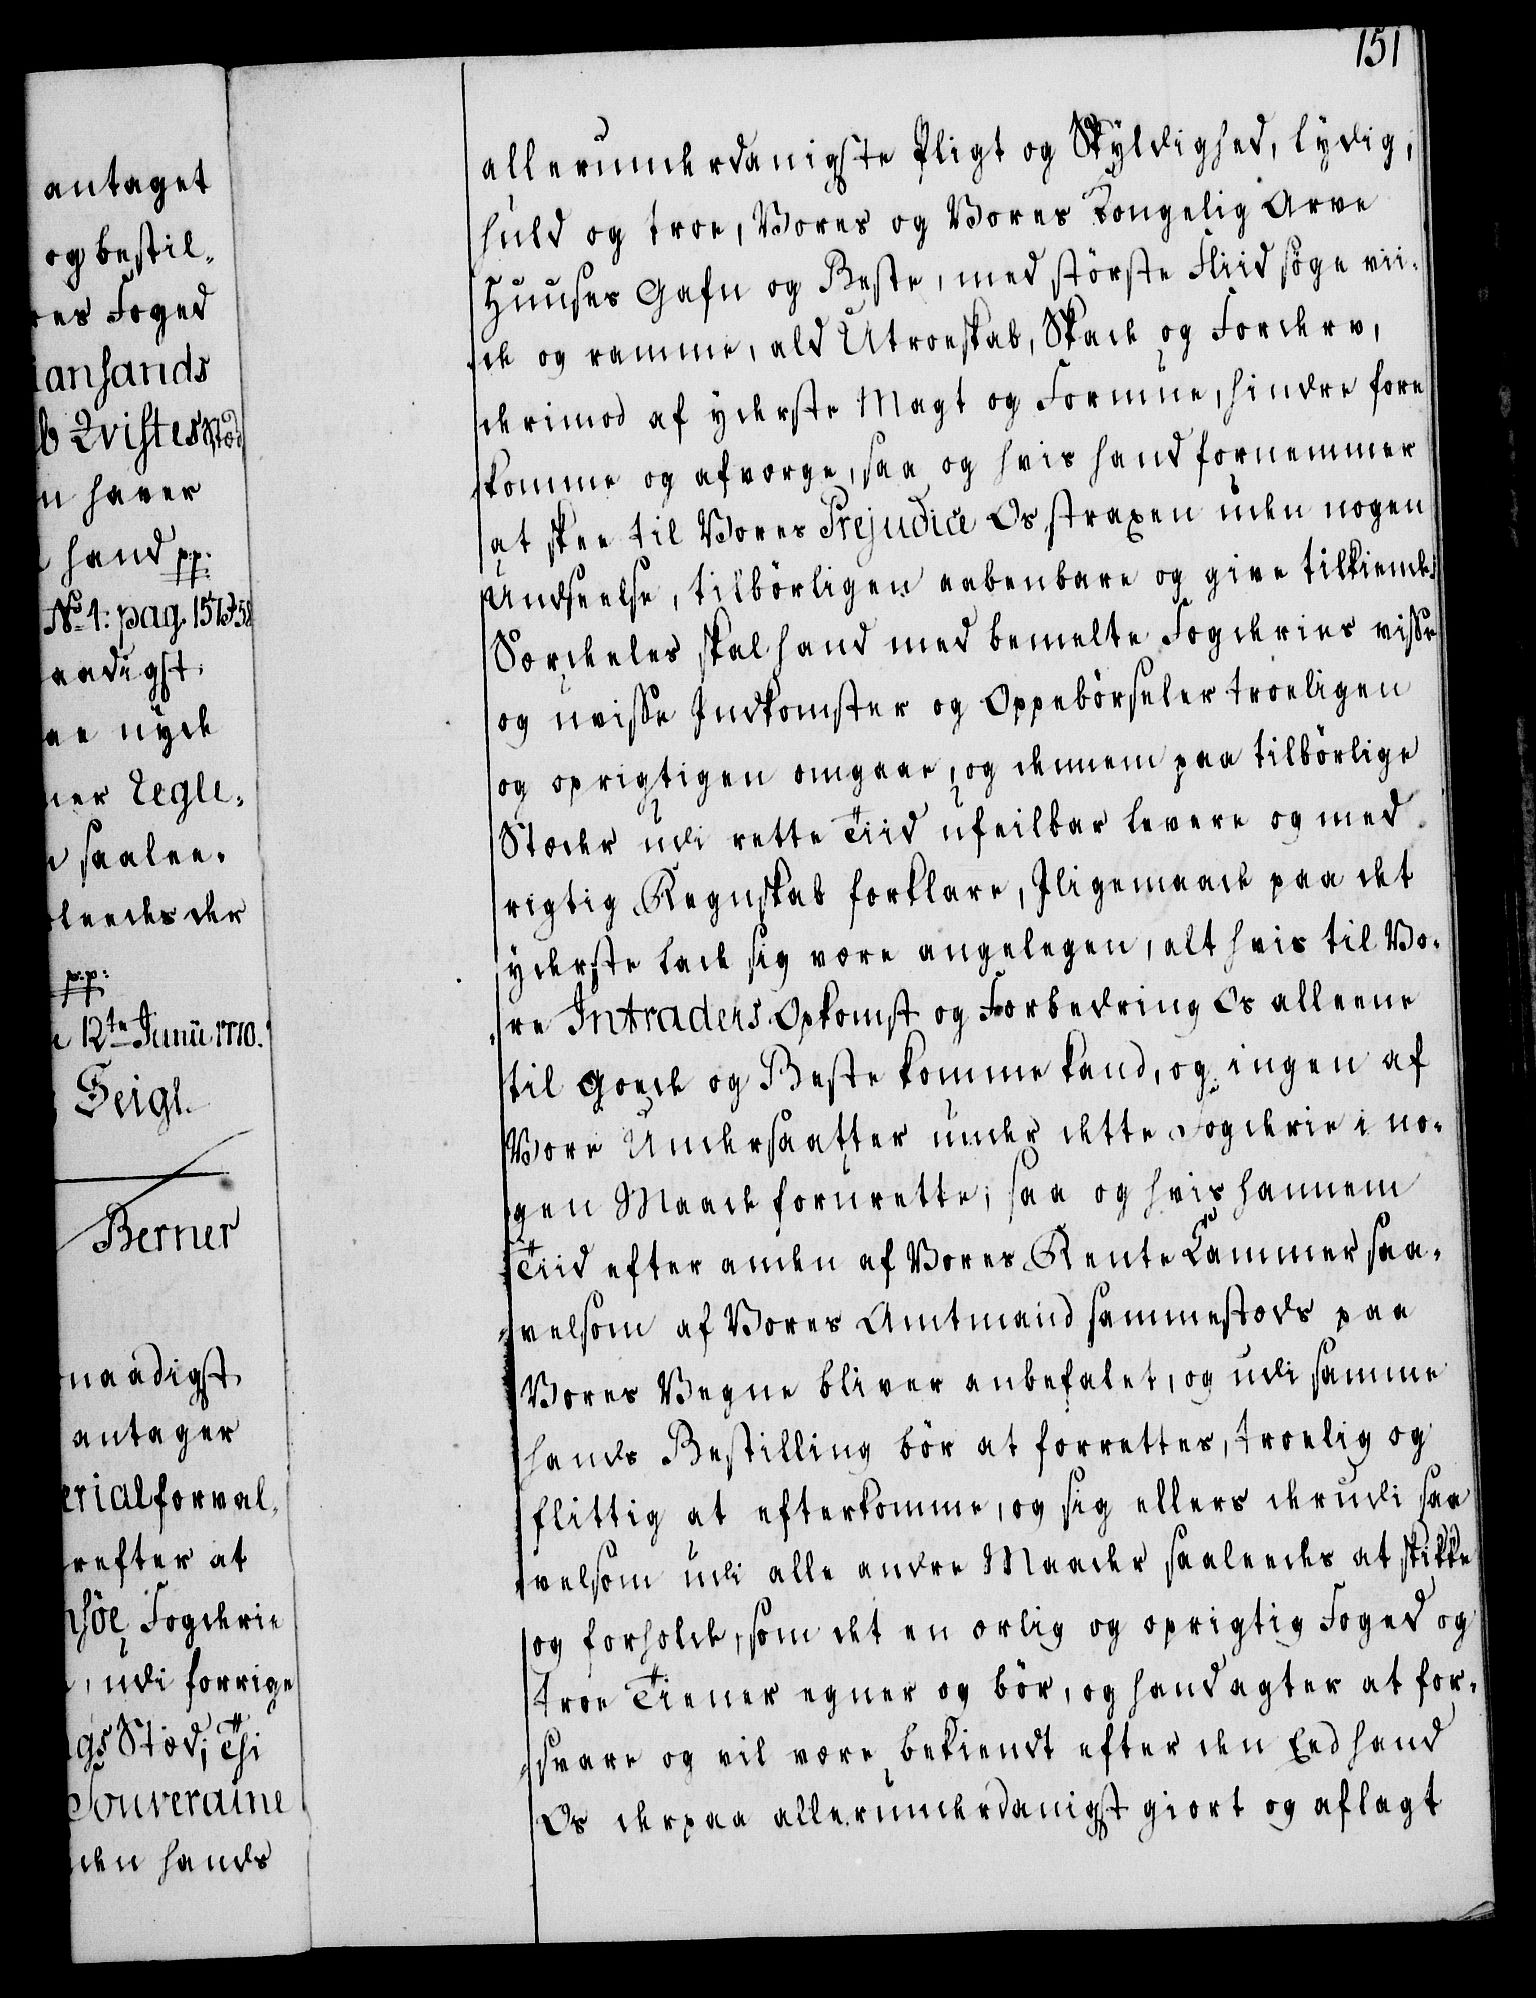 antaget
og bestil-
res Foged
iansands
b Qvistes Stæd
n haver
hand pp:
No 1: pag. 157 & 58
aadigst
ne nyde
ner Regle-
saalee-
leedes der
p.p:
12te Junii 1770.
Seigl.
Berner
naadigst
antager
erialforval-
refter at
nsöe Fogderie
, udi forrige
gs Stæd; Thi
Souveraine
den hands
151
allerunderdanigste Pligt og Skyldighed, lydig,
huld og troe, Vores og Vores Kongelig Arve
Huuses Gafn og Beste, med störste Fliid söge vii-
de og ramme, ald Utroeskab, Skade og Forderv,
derimod af yderste Magt og Formue, hindre fore
komme og afværge, saa og hvis hand fornemmer
at skee til Vores Prejudice Os straxen uden nogen
Undseelse, tilbörligen aabenbare og give tilkiende.
Særdeles skal hand med bemelte Fogderies visse
og uvisse Indkomster og Oppebörseler troeligen
og oprigtigen omgaae, og dennem paa tilbörlige
Stæder udi rette Tiid ufeilbar levere og med
rigtig Regnskab forklare, Iligemaade paa det
yderste lade sig være angelegen, alt hvis til Vo-
re Intraders Opkomst og Forbedring Os alleene
til Goede og Beste komme kand, og ingen af
Vore Undersaatter under dette Fogderie i no-
gen Maade forurette; saa og hvis hannem
Tiid efter anden af Vores Rente Kammer saa-
velsom af Vores Amtmand sammestæds paa
Vores Vegne bliver anbefalet, og udi samme
hands Bestilling bör at forrettes, troelig og
flittig at efterkomme, og sig ellers derudi saa
velsom udi alle andre Maader saaleedes at skikke
og forholde, som det en ærlig og oprigtig Foged og
troe Tiener egner og bör, og hand agter at for-
svare og vil være bekiendt efter den Eed hand
Os derpaa allerunderdanigst giort og aflagt